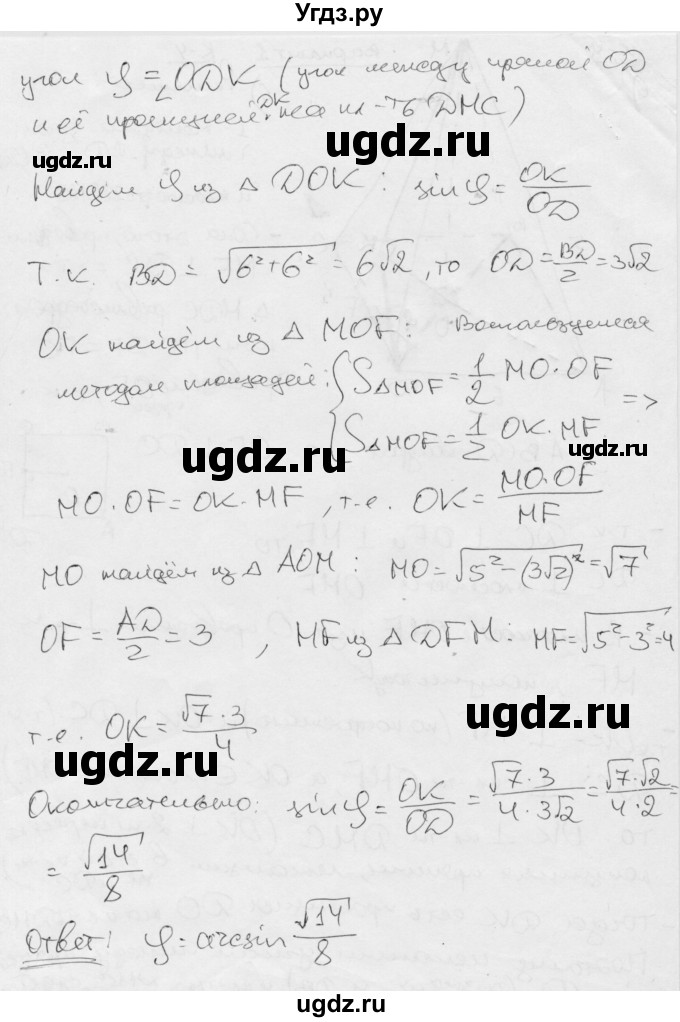 Угдз.ру
угол φ = ∠ODK (угол между прямой OD
и её проекцией DK на пл-ть DMC)
ugdz.ru ugdz.ru
Найдём φ из △ DOK : sin φ = OK/OD
Т.к. BD = √(6²+6²) = 6√2, то OD = BD/2 = 3√2
OK найдём из △ MOF: Воспользуемся
методом площадей: { S△MOF = 1/2 MO·OF
S△MOF = 1/2 OK·MF =>
ugdz.ru ugdz.ru
MO·OF = OK·MF, т.е. OK = MO·OF/MF
ugdz.ru
MO найдём из △ AOM : MO = √(5²-(3√2)²) = √7
OF = AD/2 = 3 , MF из △ DFM: MF = √(5²-3²) = 4
ugdz.ru
т.е. OK = √7·3/4
ugdz.ru
Окончательно: sin φ = OK/OD = √7·3/4·3√2 = √7·√2/4·2 =
= √14/8
ugdz.ru
Ответ: φ = arcsin √14/8
ugdz.ru ugdz.ru
ugdz.ru